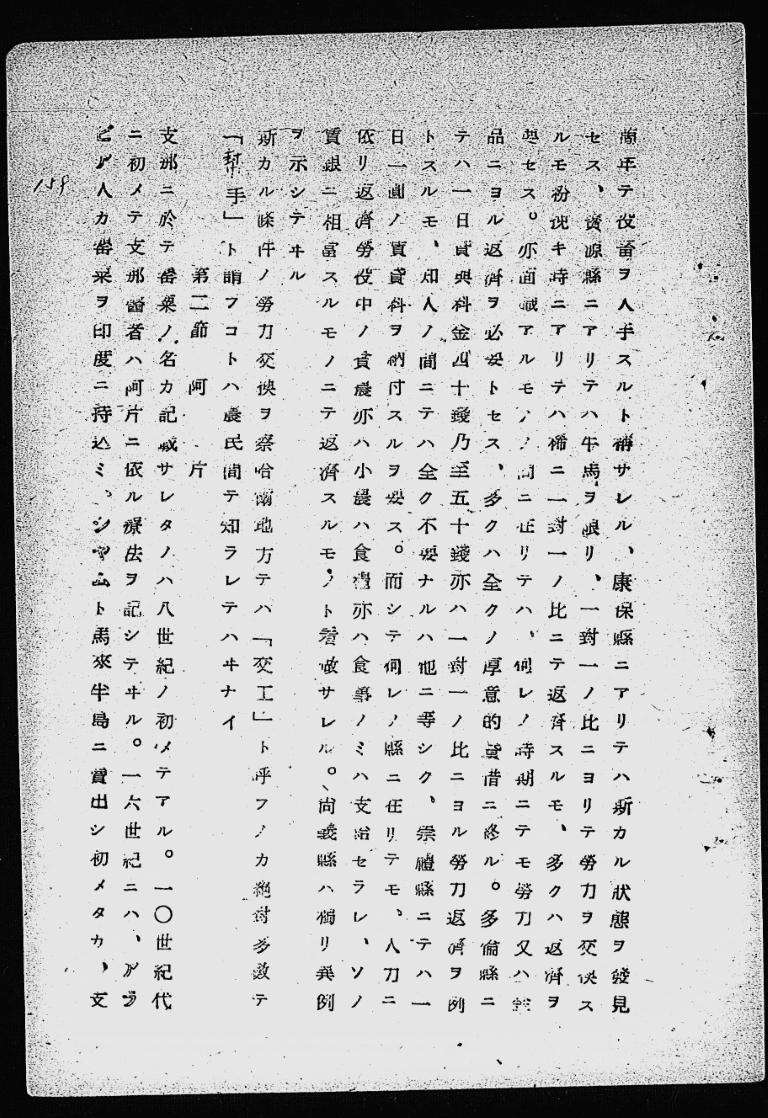 商年テ役畜ヲ人手スルト稱サレル、康保縣ニアリテハ斯カル狀態ヲ發見
セス、資源縣ニアリテハ牛馬ヲ限リ、一對一ノ比ニヨリテ勞力ヲ交換ス
ルモ粉忙キ時ニアリテハ稀ニ一對一ノ比ニテ返濟スルモ、多クハ返濟ヲ
要セス。亦面識アルモノノ間ニ在リテハ、何レノ時期ニテモ勞力又ハ
品ニヨル返濟ヲ必要トセス、多クハ全クノ厚意的貸借ニ終ル。多倫縣ニ
テハ一日貸與料金四十錢乃至五十錢亦ハ一對一ノ比ニヨル勞力返濟ヲ例
トスルモ、知人ノ間ニテハ全ク不要ナルハ他ニ等シク、崇禮縣ニテハ一
日一圓ノ賃貸料ヲ納付スルヲ要ス。而シテ何レノ縣ニ在リテモ、人力ニ
依リ返濟勞役中ノ貧農亦ハ小農ハ食糧亦ハ食事ノミハ支給セラレ、ソノ
賃銀ニ相當スルモノニテ返濟スルモノト看做サレル。尚義縣ハ獨リ異例
ヲ示シテヰル
斯カル條件ノ勞力交換ヲ察哈爾地方テハ「交工」ト呼フノカ絕對多數テ
「幇手」ト謂フコトハ農民間テ知ラレテハヰナイ
第二節 阿片
支那ニ於テ罌粟ノ名カ記載サレタノハ八世紀ノ初メテアル。一〇世紀代
ニ初メテ支那醫者ハ阿片ニ依ル療法ヲ記シテヰル。一六世紀ニハ、アラ
ビア人カ罌粟ヲ印度ニ持込ミ、シヤムト馬來半島ニ賣出シ初メタカ、支
159